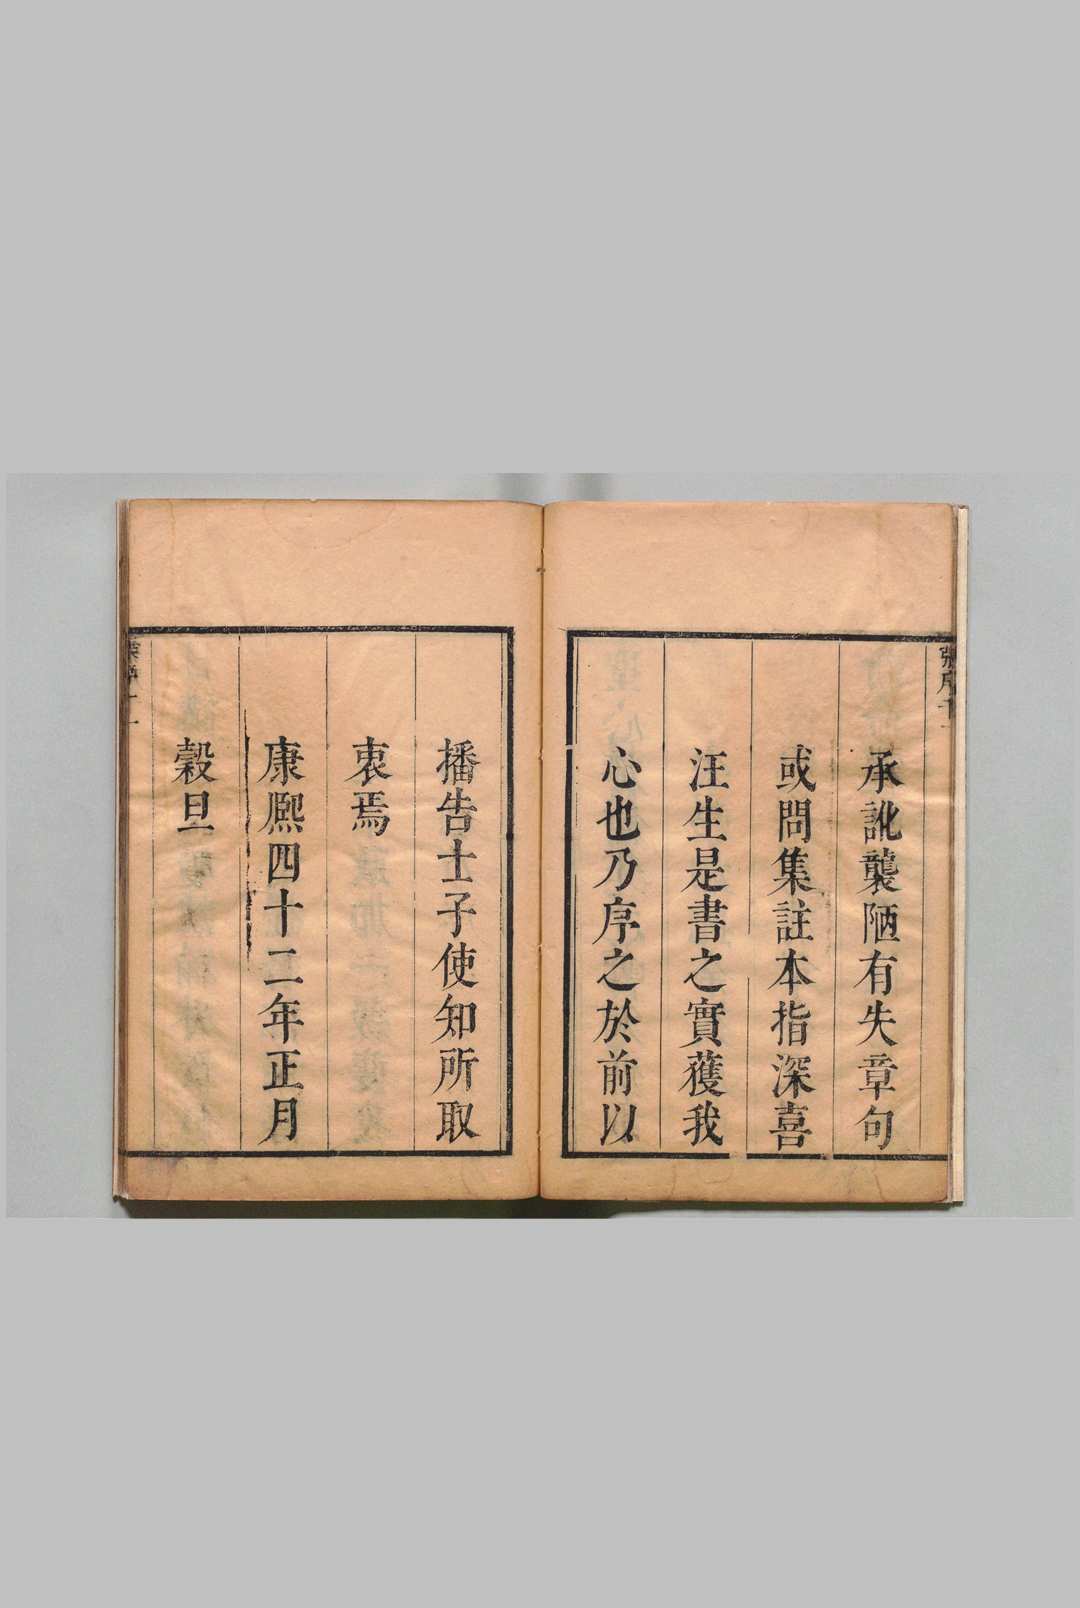 承訛襲陋有失章句
或問集註本指深喜
汪生是書之實獲我
心也乃序之於前以
播告士子使知所取
衷焉
康熙四十二年正月
穀旦